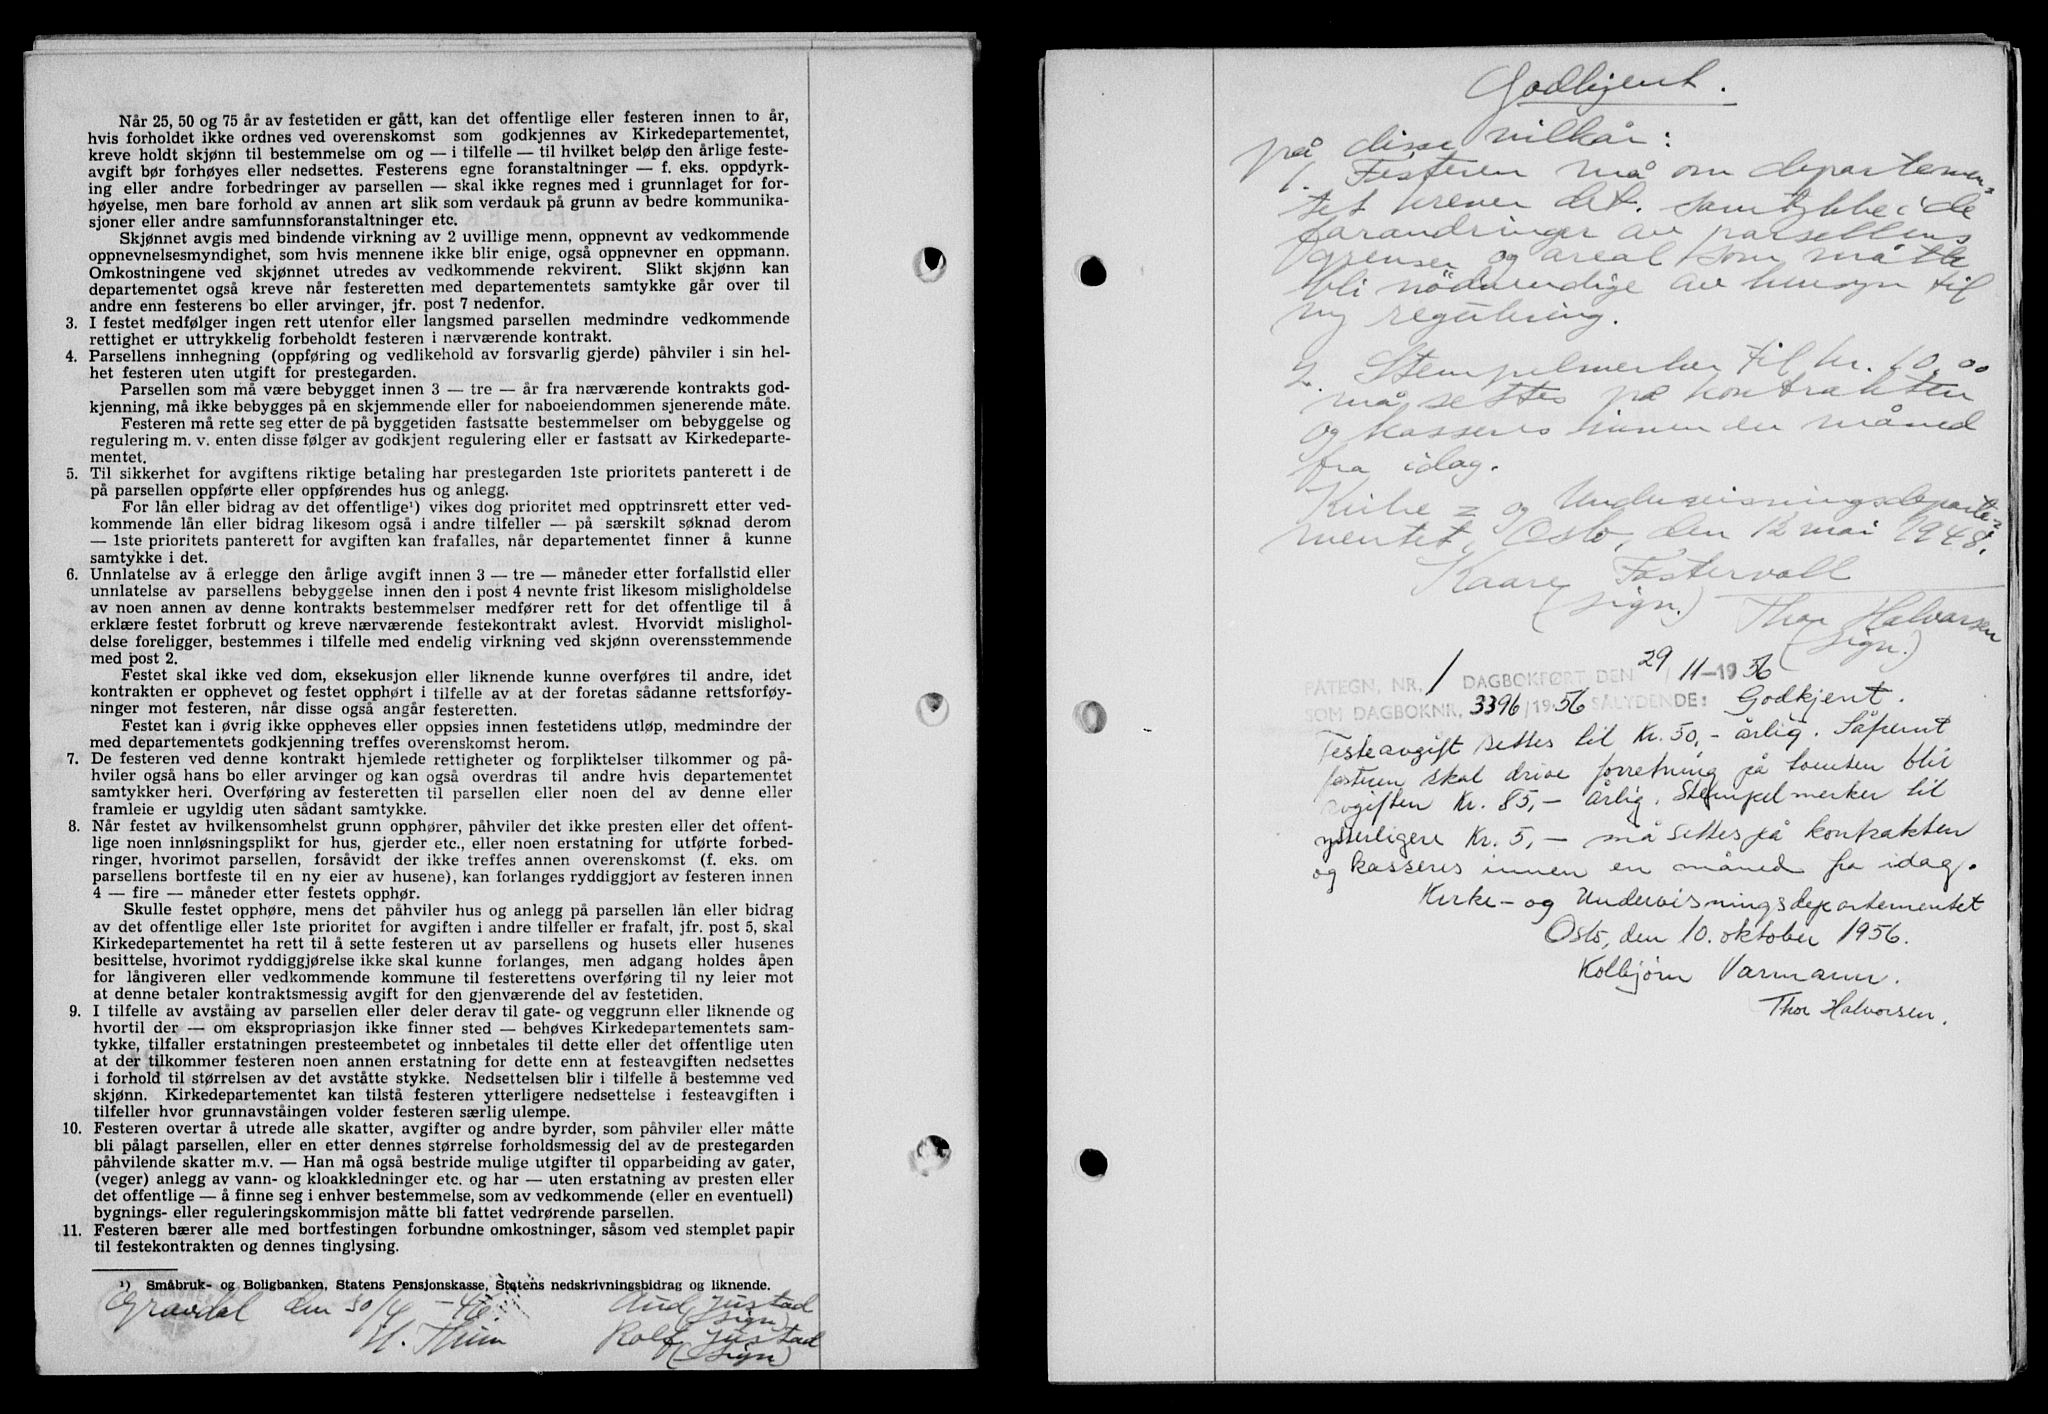 Når 25, 50 og 75 år av festetiden er gått, kan det offentlige eller festeren innen to år,
hvis forholdet ikke ordnes ved overenskomst som godkjennes av Kirkedepartementet,
kreve holdt skjønn til bestemmelse om og — i tilfelle — til hvilket beløp den årlige feste-
avgift bør forhøyes eller nedsettes. Festerens egne foranstaltninger — f. eks. oppdyrk-
ing eller andre forbedringer av parsellen — skal ikke regnes med i grunnlaget for for-
høyelse, men bare forhold av annen art slik som verdauk på grunn av bedre kommunika-
sjoner eller andre samfunnsforanstaltninger etc.
Skjønnet avgis med bindende virkning av 2 uvillige menn, oppnevnt av vedkommende
oppnevnelsesmyndighet, som hvis mennene ikke blir enige, også oppnevner en oppmann.
Omkostningene ved skjønnet utredes av vedkommende rekvirent. Slikt skjønn kan
departementet også kreve når festeretten med departementets samtykke går over til
andre enn festerens bo eller arvinger, jfr. post 7 nedenfor.
3. I festet medfølger ingen rett utenfor eller langsmed parsellen medmindre vedkommende
rettighet er uttrykkelig forbeholdt festeren i nærværende kontrakt.
4. Parsellens innhegning (oppføring og vedlikehold av forsvarlig gjerde) påhviler i sin hel-
het festeren uten utgift for prestegarden.
Parsellen som må være bebygget innen 3 — tre — år fra nærværende kontrakts god-
kjenning, må ikke bebygges på en skjemmende eller for naboeiendommen sjenerende måte.
Festeren må rette seg etter de på byggetiden fastsatte bestemmelser om bebyggelse og
regulering m. v. enten disse følger av godkjent regulering eller er fastsatt av Kirkedeparte-
mentet.
5. Til sikkerhet for avgiftens riktige betaling har prestegarden 1ste prioritets panterett i de
på parsellen oppførte eller oppførendes hus og anlegg.
For lån eller bidrag av det offentlige¹) vikes dog prioritet med opptrinsrett etter ved-
kommende lån eller bidrag likesom også i andre tilfeller — på særskilt søknad derom
— 1ste prioritets panterett for avgiften kan frafalles, når departementet finner å kunne
samtykke i det.
6. Unnlatelse av å erlegge den årlige avgift innen 3 — tre — måneder etter forfallstid eller
unnlatelse av parsellens bebyggelse innen den i post 4 nevnte frist likesom misligholdelse
av noen annen av denne kontrakts bestemmelser medfører rett for det offentlige til å
erklære festet forbrutt og kreve nærværende festekontrakt avlest. Hvorvidt misligho-
delse foreligger, bestemmes i tilfelle med endelig virkning ved skjønn overensstemmende
med post 2.
Festet skal ikke ved dom, eksekusjon eller liknende kunne overføres til andre, idet
kontrakten er opphevet og festet opphørt i tilfelle av at der foretas sådanne rettsforføy-
ninger mot festeren, når disse også angår festeretten.
Festet kan i øvrig ikke oppheves eller oppsies innen festetidens utløp, medmindre der
med departementets godkjenning treffes overenskomst herom.
7. De festeren ved denne kontrakt hjemlede rettigheter og forpliktelser tilkommer og på-
hviler også hans bo eller arvinger og kan også overdras til andre hvis departementet
samtykker heri. Overføring av festeretten til parsellen eller noen del av denne eller
framleie er ugyldig uten sådant samtykke.
8. Når festet av hvilkensomhelst grunn opphører, påhviler det ikke presten eller det offent-
lige noen innløsningsplikt for hus, gjerder etc., eller noen erstatning for utførte forbed-
ringer, hvorimot parsellen, forsåvidt der ikke treffes annen overenskomst (f. eks. om
parsellens bortfeste til en ny eier av husene), kan forlanges ryddiggjort av festeren innen
4 — fire — måneder etter festets opphør.
Skulle festet opphøre, mens det påhviler hus og anlegg på parsellen lån eller bidrag
av det offentlige eller 1ste prioritet for avgiften i andre tilfeller er frafalt, jfr. post 5, skal
Kirkedepartementet ha rett til å sette festeren ut av parsellens og husets eller husenes
besittelse, hvorimot ryddiggjørelse ikke skal kunne forlanges, men adgang holdes åpen
for långiveren eller vedkommende kommune til festerettens overføring til ny leier mot
at denne betaler kontraktsmessig avgift for den gjenværende del av festetiden.
9. I tilfelle av avståing av parsellen eller deler derav til gate- og veggrunn eller liknende og
hvortil der — om ekspropriasjon ikke finner sted — behøves Kirkedepartementets sam-
tykke, tilfaller erstatningen presteembetet og innbetales til dette eller det offentlige uten
at der tilkommer festeren noen annen erstatning for dette enn at festeavgiften nedsettes
i forhold til størrelsen av det avståtte stykke. Nedsettelsen blir i tilfelle å bestemme ved
skjønn. Kirkedepartementet kan tilstå festeren ytterligere nedsettelse i festeavgiften i
tilfeller hvor grunnavståingen volder festeren særlig ulempe.
10. Festeren overtar å utrede alle skatter, avgifter og andre byrder, som påhviler eller måtte
bli pålagt parsellen, eller en etter dennes størrelse forholdsmessig del av de prestegarden
påhvilende skatter m.v. — Han må også bestride mulige utgifter til opparbeiding av gater,
(veger) anlegg av vann- og kloakkledninger etc. og har — uten erstatning av presten eller
det offentlige — å finne seg i enhver bestemmelse, som av vedkommende (eller en eventuell)
bygnings- eller reguleringskommisjon måtte bli fattet vedrørende parsellen.
11. Festeren bærer alle med bortfestingen forbundne omkostninger, såsom ved stemplet papir
til festekontrakten og dennes tinglysing.
¹) Småbruk- og Boligbanken, Statens Pensjonskasse, Statens nedskrivningsbidrag og liknende.
Gravdal den 30/4 - 46.
Aud Justad
(sign)
H. Thim
Rolf Justad
(sign)
Godkjent.
på disse vilkår:
1. Festeren må om departemen=
tet krever det. samtykke i de
forandringer av parsellens
grenser og areal som måtte
bli nödvendige av hensyn til
ny regulering.
2. Stempelmerker til kr. 10.00
må settes på kontrakten
og kasseres innen en måned
fra idag.
Kirke = og Undervisningsdeparte=
mentet, Oslo, den 12 mai 1948.
Kaare Fostervoll
(sign.)
Thor Halvorsen
(sign.)
PÅTEGN. NR. 1 DAGBOKFØRT DEN 29/11-1956
SOM DAGBOKNR. 3396/1956 SÅLYDENDE: Godkjent.
Festeavgift settes til Kr. 50,- årlig. Såfremt
festeren skal drive forretning på tomten blir
avgiften Kr. 85,- årlig. Stempelmerker til
ytterligere Kr. 5,- må settes på kontrakten
og kasseres innen en måned fra idag.
Kirke- og Undervisningsdepartementet
Oslo, den 10. oktober 1956.
Kolbjørn Varmann.
Thor Halvorsen.